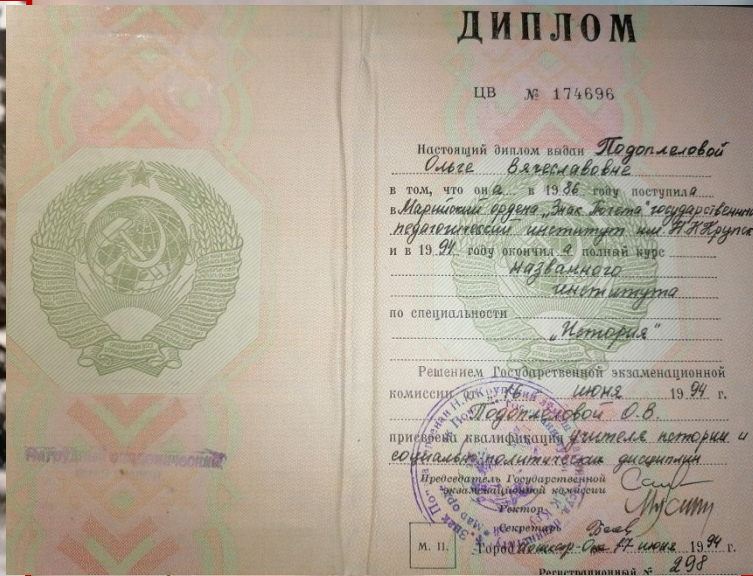 ДИПЛОМ
ЦВ № 174696
Настоящий диплом выдан Подоплеловой
Ольге Вячеславовне
в том, что она в 1986 году поступила
в Марийский ордена „Знак Почета" государственный
педагогический институт им. Н.К.Крупск
и в 1994 году окончила полный курс
названного
института
по специальности
„История"
Решением Государственной экзаменационной
комиссии от „16" июня 1994 г.
Подоплеловой О.В.
присвоена квалификация учителя истории и
социально-политических дисциплин
Председатель Государственной
экзаменационной комиссии
Ректор
Секретарь
М. П.
Город Йошкар-Ола 17 июня 1994 г.
Регистрационный № 298